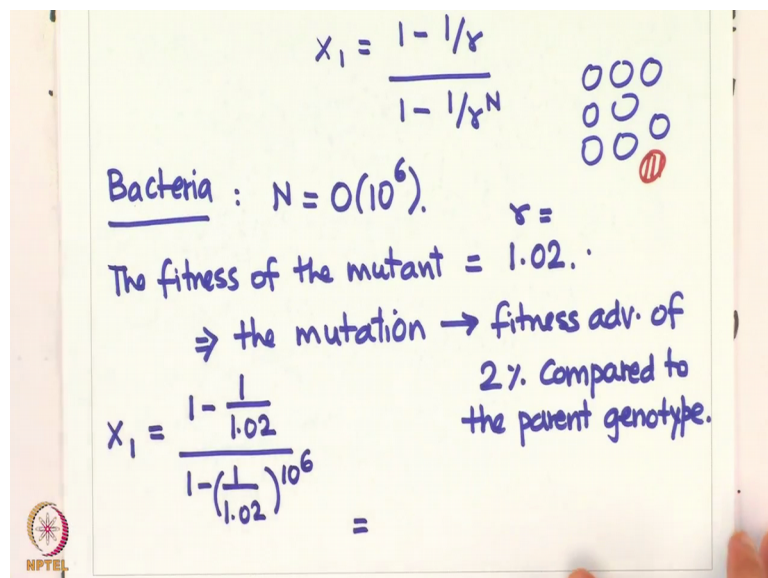 X₁ = (1 - 1/r) / (1 - 1/r^N)
Bacteria : N = O(10⁶).
The fitness of the mutant = r = 1.02.
⇒ the mutation → fitness adv. of
2%. Compared to
the parent genotype.
X₁ = (1 - 1/1.02) / (1 - (1/1.02)^10⁶) =
NPTEL